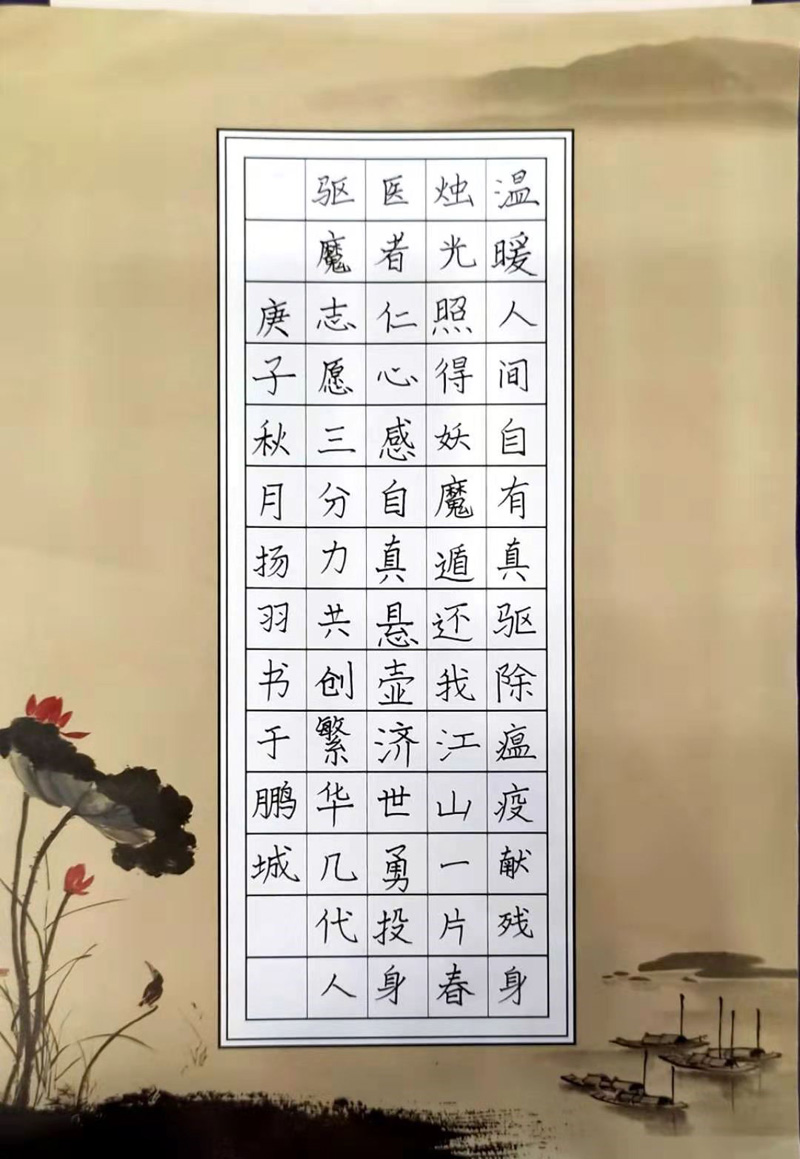 温暖人间自有真驱除瘟疫献残身
烛光照得妖魔遁还我江山一片春
医者仁心感自真悬壶济世勇投身
驱魔志愿三分力共创繁华几代人
庚子秋月扬羽书于鹏城